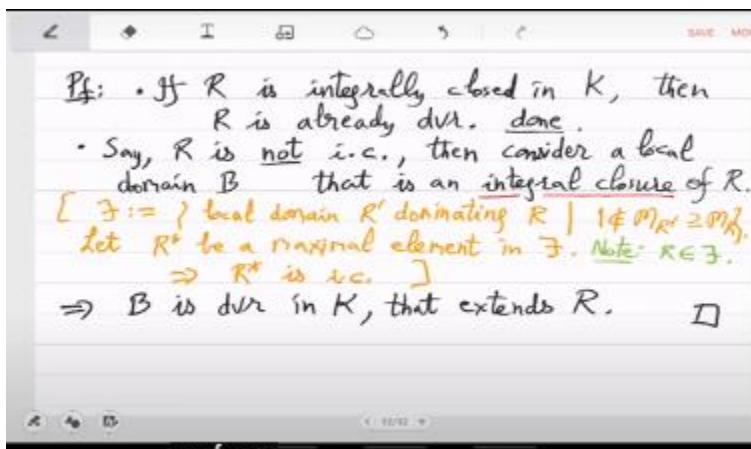 SAVE
Pf: · If R is integrally closed in K, then
R is already dvr. done.
· Say, R is not i.c., then consider a local
domain B that is an integral closure of R.
[ F := { local domain R' dominating R | 1∉ m_R' ⊇ m_R }.
Let R* be a maximal element in F. Note: R∈F.
⇒ R* is i.c. ]
⇒ B is dvr in K, that extends R. □